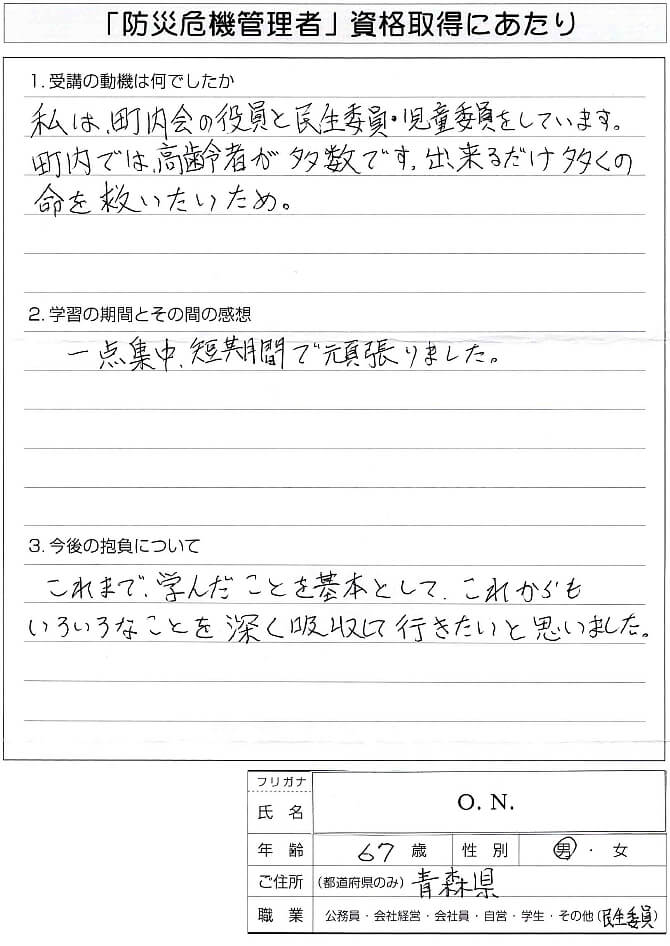 「防災危機管理者」資格取得にあたり
1. 受講の動機は何でしたか
私は、町内会の役員と民生委員・児童委員をしています。
町内では、高齢者が多数です。出来るだけ多くの
命を救いたいため。
2. 学習の期間とその間の感想
一点集中、短期間で頑張りました。
3. 今後の抱負について
これまで、学んだことを基本として、これからも
いろいろなことを深く吸収して行きたいと思いました。
フリガナ
氏名 O. N.
年齢 67 歳 性別 男・女
ご住所 (都道府県のみ) 青森県
職業 公務員・会社経営・会社員・自営・学生・その他(民生委員)